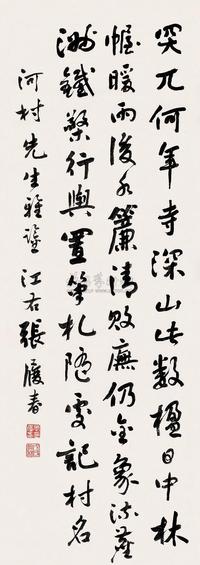 突兀何年寺深山此數楹日中林
幄暖雨後水簾清敗廡仍金象流塵
澀鐵檠行輿置筆札隨處記村名
河村先生雅鑒 江右張履春